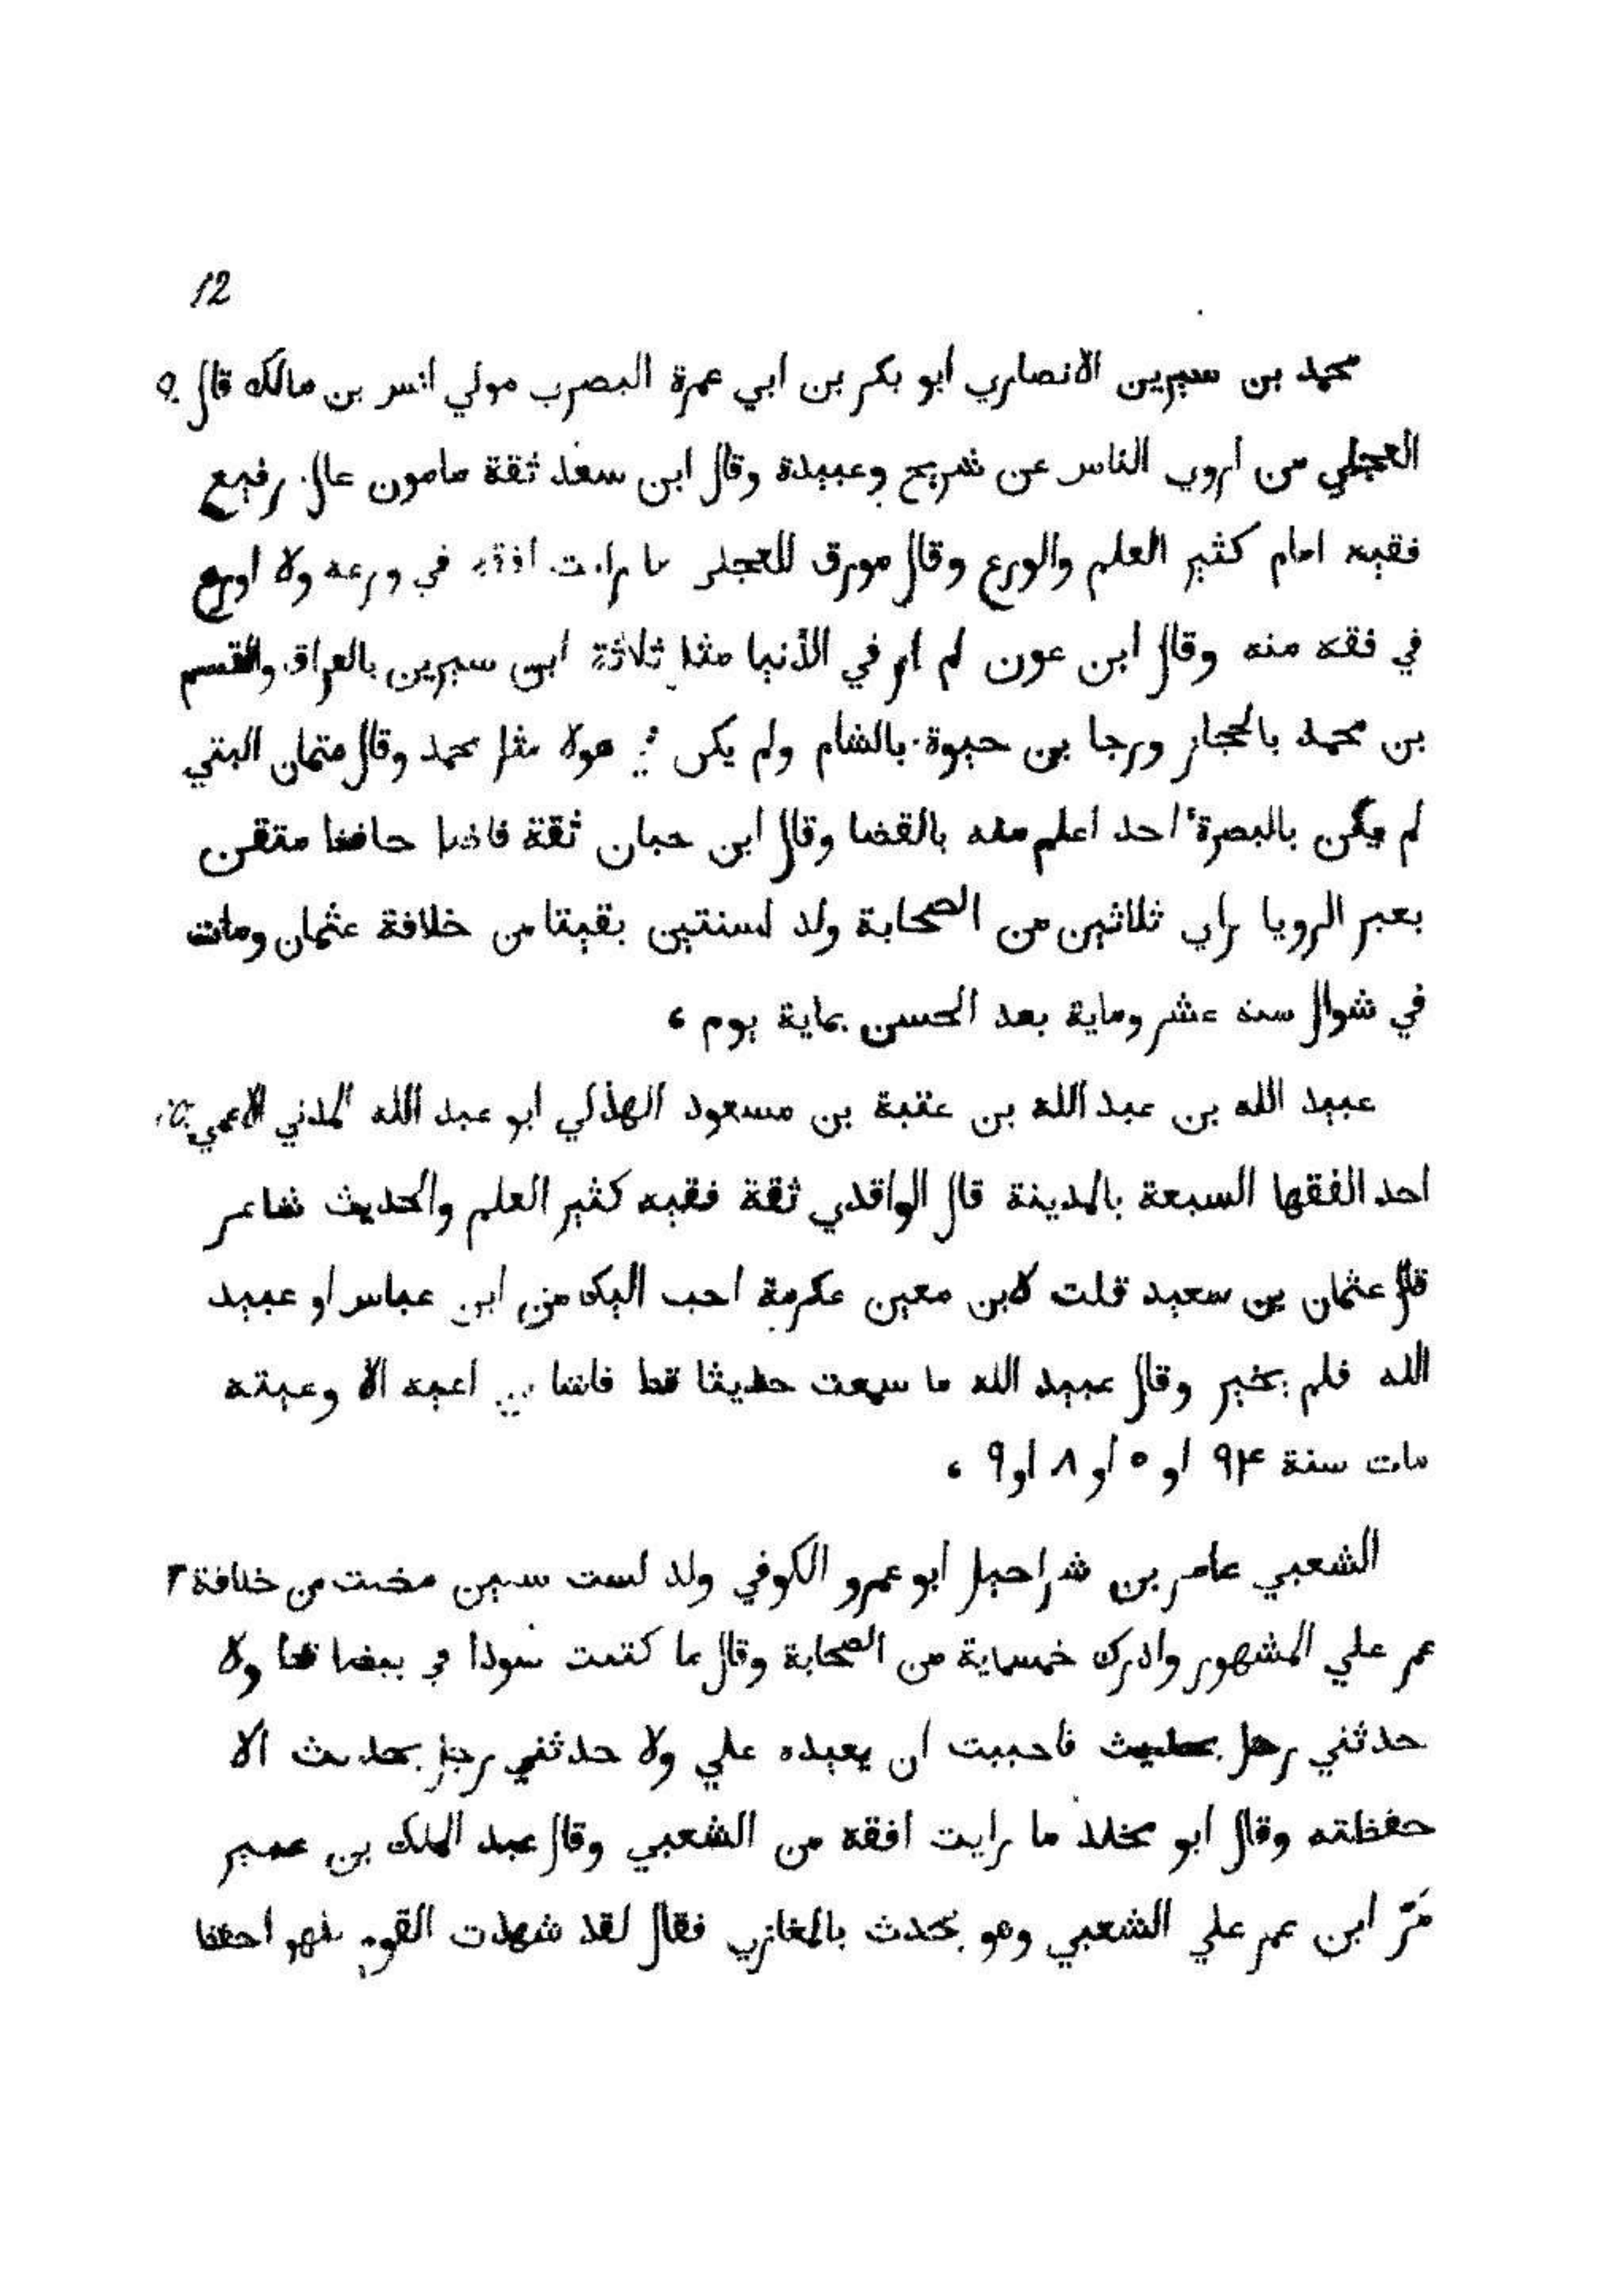 12
محمد بن سيرين الانصاري ابو بكر بن ابي عمرة البصري مولي انس بن مالك قال ٩
العجلي من اروي الناس عن شريح وعبيدة وقال ابن سعد ثقة مامون عال رفيع
فقيه امام كثير العلم والورع وقال مورق العجلي ما رايت افقه في ورعه ولا اورع
في فقه منه وقال ابن عون لم ار في الدنيا مثل ثلاثة ابن سيرين بالعراق والقسم
بن محمد بالحجاز ورجا بن حيوة بالشام ولم يكن في هولا مثل محمد وقال عثمان البتي
لم يكن بالبصرة احد اعلم منه بالقضا وقال ابن حبان ثقة فاضل حافظ متقن
يعبر الرويا راي ثلاثين من الصحابة ولد لسنتين بقيتا من خلافة عثمان ومات
في شوال سنة عشر وماية بعد الحسن بماية يوم ،
عبيد الله بن عبد الله بن عتبة بن مسعود الهذلي ابو عبد الله المدني الاعمي
احد الفقها السبعة بالمدينة قال الواقدي ثقة فقيه كثير العلم والحديث شاعر
قال عثمان بن سعيد قلت لابن معين عكرمة احب اليك من ابن عباس او عبيد
الله فلم يخير وقال عبيد الله ما سمعت حديثا قط فاشا اعيه الا وعيته
مات سنة ٩٤ او ٥ او ٨ او ٩ ،
الشعبي عامر بن شراحيل ابو عمرو الكوفي ولد لست سنين مضت من خلافة ٣
عمر علي المشهور وادرك خمسماية من الصحابة وقال ما كتبت سودا في بيضا قط ولا
حدثني رجل بحديث فاحببت ان يعيده علي ولا حدثني رجل بحديث الا
حفظته وقال ابو مخلد ما رايت افقه من الشعبي وقال عبد الملك بن عمير
مَرّ ابن عمر علي الشعبي وهو يحدث بالمغازي فقال لقد شهدت القوم فلهو احفظ